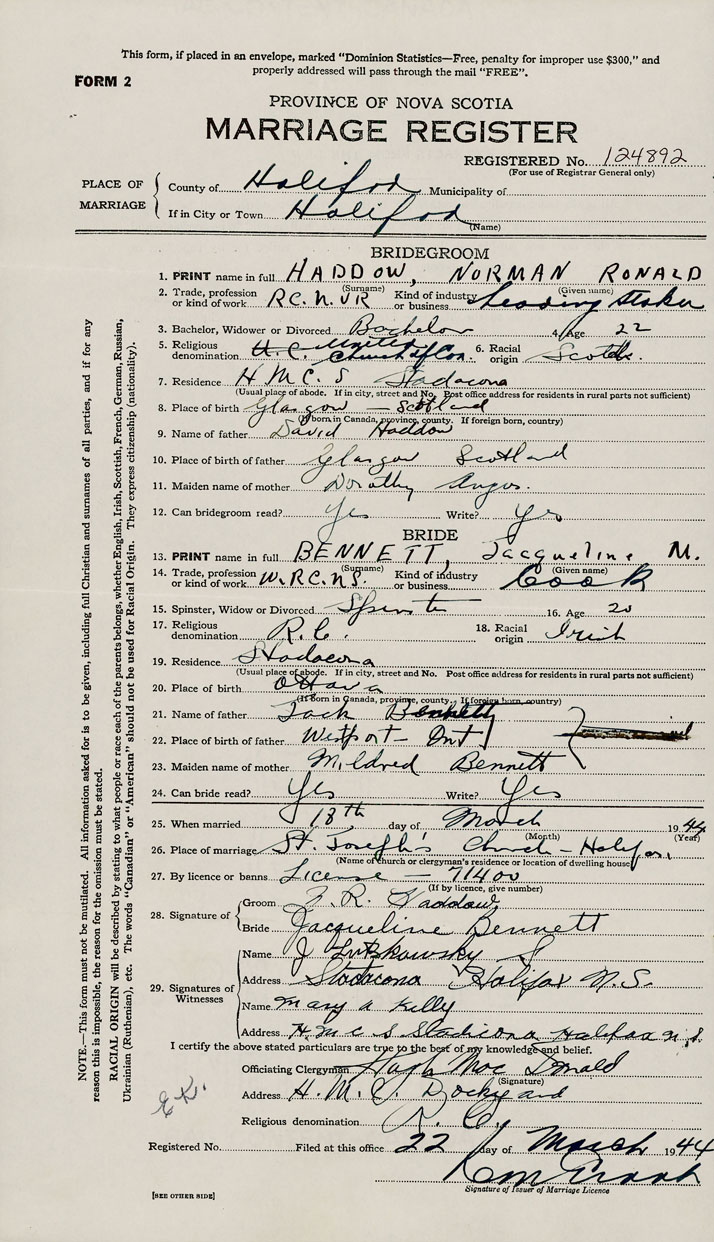 This form, if placed in an envelope, marked “Dominion Statistics—Free, penalty for improper use $300,” and
properly addressed will pass through the mail “FREE”.
FORM 2
PROVINCE OF NOVA SCOTIA
MARRIAGE REGISTER
REGISTERED No. 124892
(For use of Registrar General only)
PLACE OF MARRIAGE
County of Halifax Municipality of
If in City or Town Halifax
(Name)
BRIDEGROOM
1. PRINT name in full HADDOW, NORMAN RONALD
(Surname) (Given name)
2. Trade, profession or kind of work R.C.N.V.R Kind of industry or business Leading Stoker
3. Bachelor, Widower or Divorced Bachelor 4. Age 22
5. Religious denomination U.C. United Church of Can. 6. Racial origin Scotch.
7. Residence H M C S Stadacona
(Usual place of abode. If in city, street and No. Post office address for residents in rural parts not sufficient)
8. Place of birth Glasgow — Scotland
(If born in Canada, province, county. If foreign born, country)
9. Name of father David Haddow
10. Place of birth of father Glasgow Scotland
11. Maiden name of mother Dorothy Angus.
12. Can bridegroom read? Yes Write? Yes
BRIDE
13. PRINT name in full BENNETT, Jacqueline M.
(Surname) (Given name)
14. Trade, profession or kind of work W.R.C.N.S. Kind of industry or business Cook
15. Spinster, Widow or Divorced Spinster 16. Age 20
17. Religious denomination R.C. 18. Racial origin Irish
19. Residence Stadacona
(Usual place of abode. If in city, street and No. Post office address for residents in rural parts not sufficient)
20. Place of birth Ottawa
(If born in Canada, province, county. If foreign born, country)
21. Name of father Jack Bennett
22. Place of birth of father Westport — Ont
23. Maiden name of mother Mildred Bennett
24. Can bride read? Yes Write? Yes
25. When married 18th day of March 1944
(Month) (Year)
26. Place of marriage St. Joseph's Church — Halifax,
(Name of church or clergyman's residence or location of dwelling house)
27. By licence or banns License — 71400
(If by licence, give number)
28. Signature of
Groom R. Haddow
Bride Jacqueline Bennett
29. Signatures of Witnesses
Name J
Address Stadacona Halifax N.S.
Name Mary A Kelly
Address H.M.C.S Stadicona Halifax N.S.
I certify the above stated particulars are true to the best of my knowledge and belief.
Officiating Clergyman Hugh MacDonald
(Signature)
Address H.M.C. Dockyard
Religious denomination R.C.
Registered No. Filed at this office 22 day of March 1944
Signature of Issuer of Marriage Licence
[SEE OTHER SIDE]
NOTE.—This form must not be mutilated. All information asked for is to be given, including full Christian and surnames of all parties, and if for any
reason this is impossible, the reason for the omission must be stated.
RACIAL ORIGIN will be described by stating to what people or race each of the parents belongs, whether English, Irish, Scottish, French, German, Russian,
Ukrainian (Ruthenian), etc. The words “Canadian” or “American” should not be used for Racial Origin. They express citizenship (nationality).
E.K.